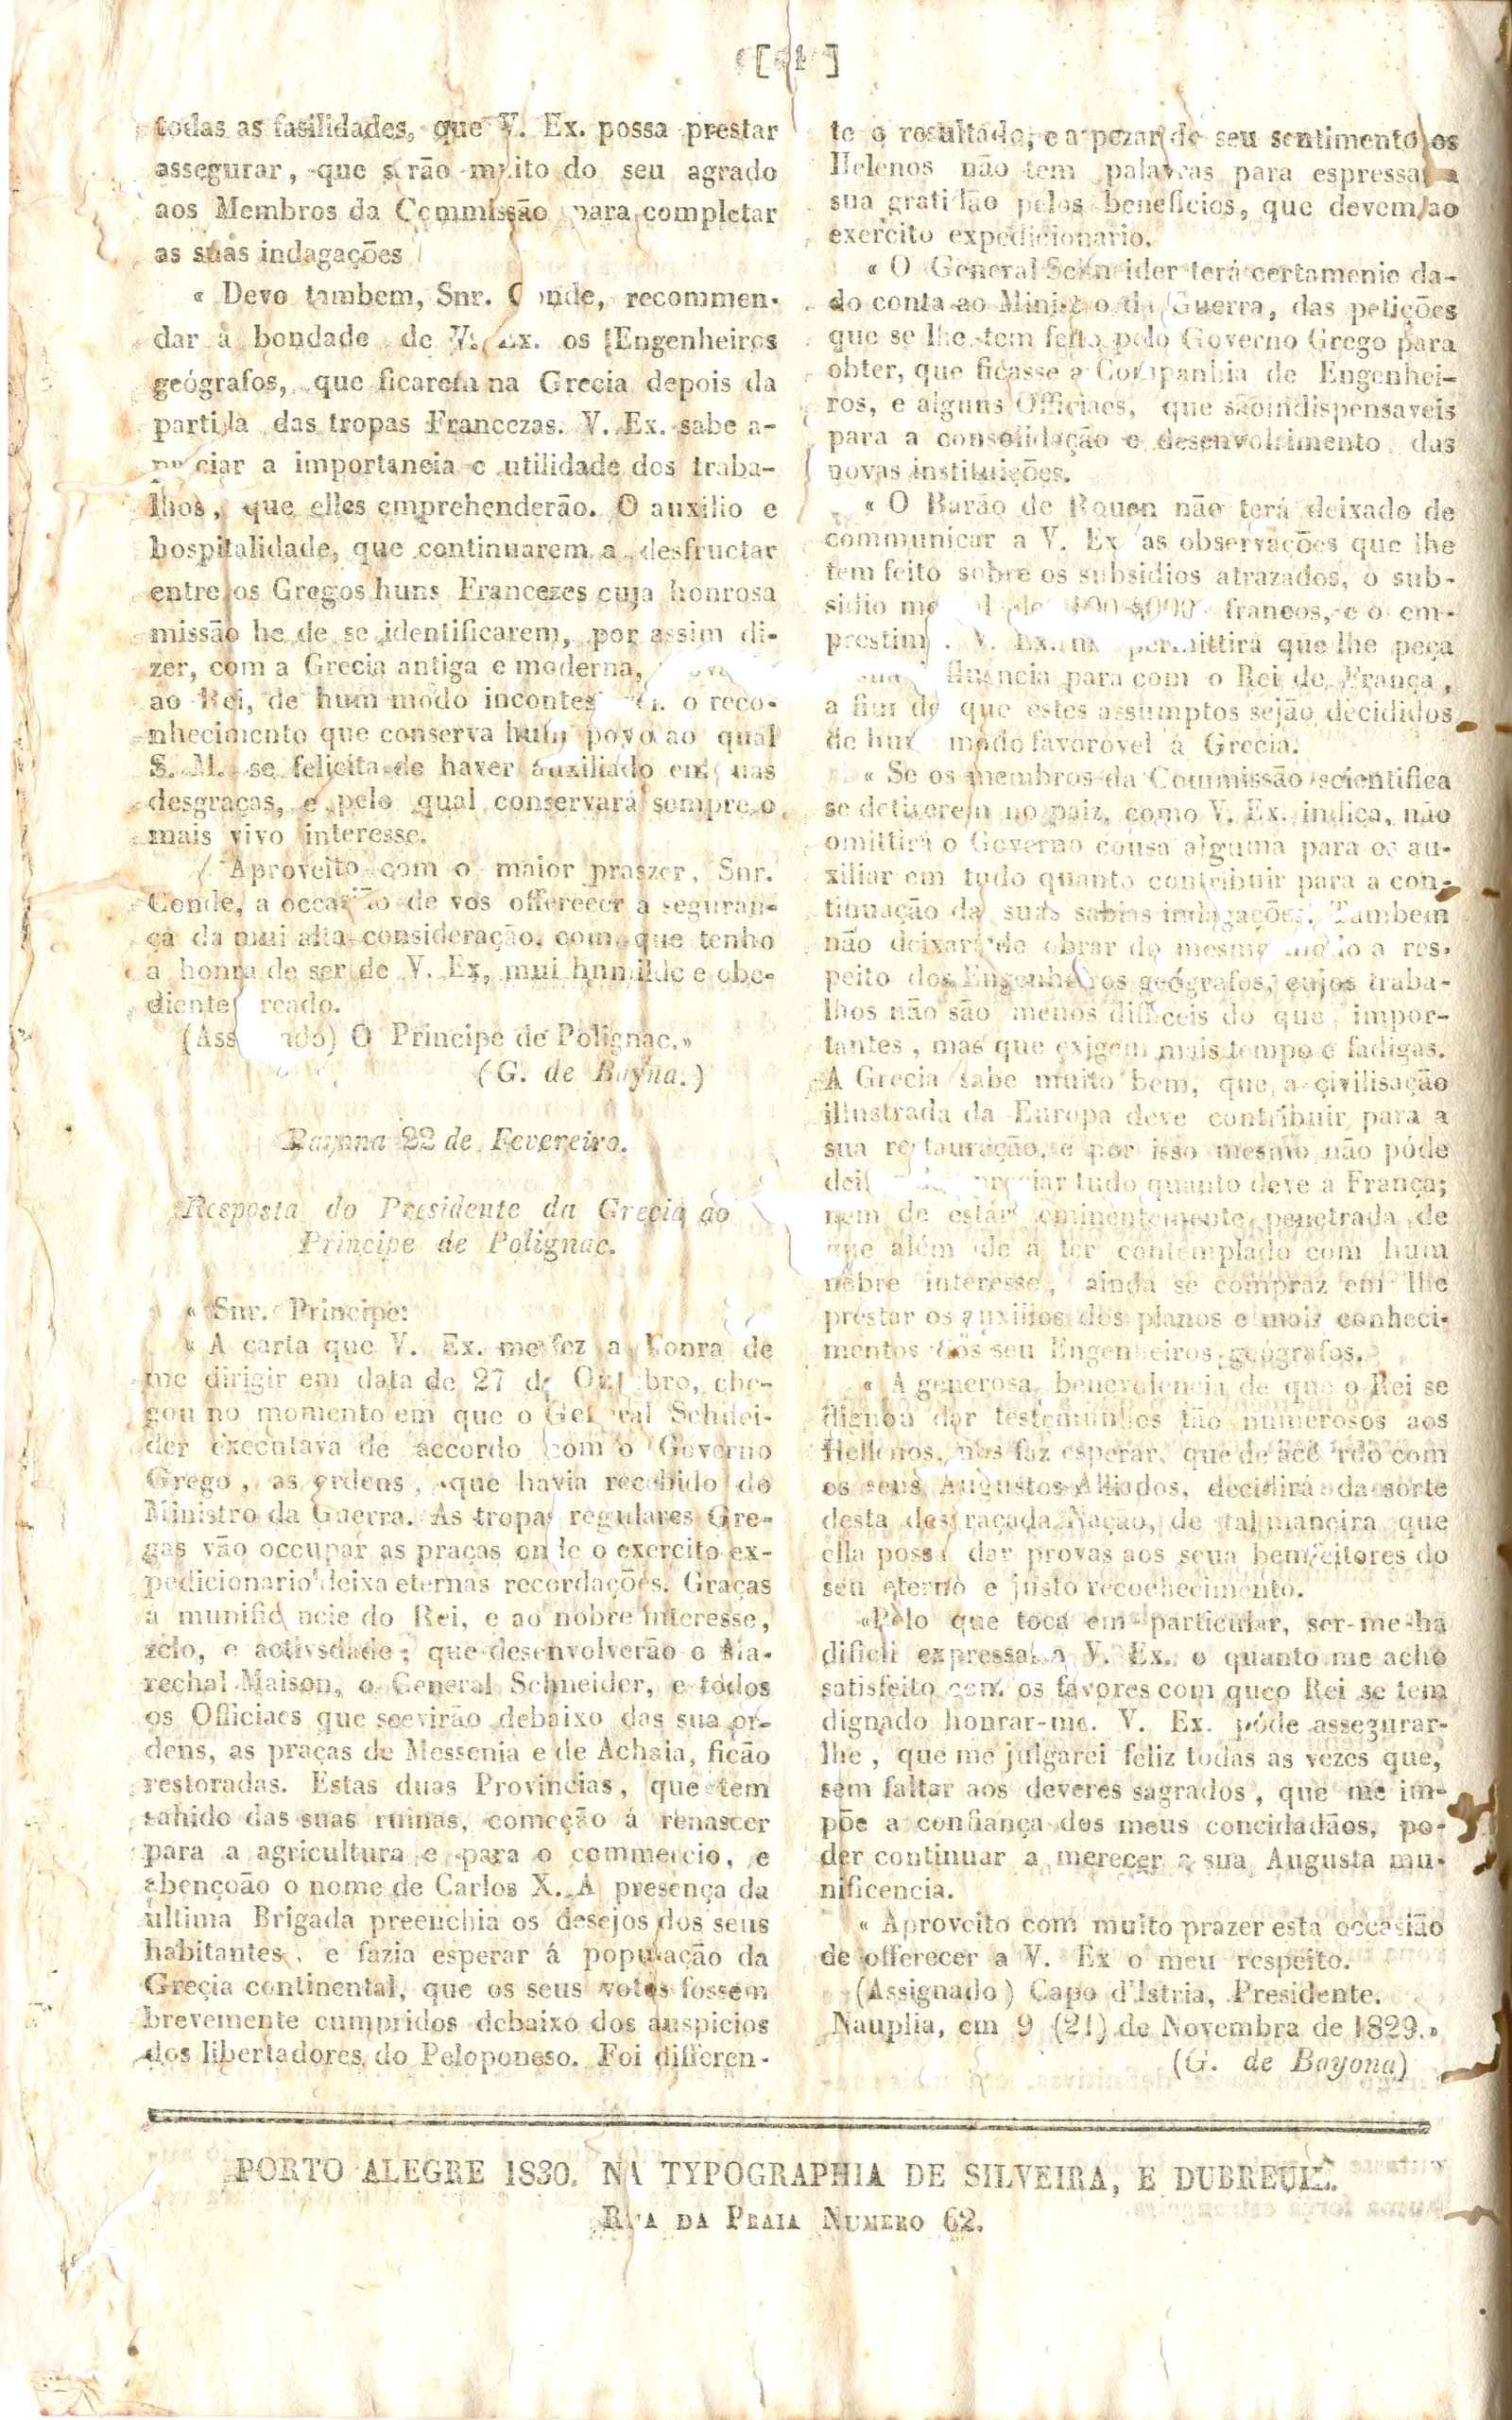 [ 4 ]
todas as fasilidades, que V. Ex. possa prestar
assegurar, que serão muito do seu agrado
aos Membros da Commissão para completar
as suas indagações
« Devo tambem, Snr. Conde, recommen-
dar à bondade de V. Ex. os Engenheiros
geógrafos, que ficarem na Grecia depois da
partida das tropas Francezas. V. Ex. sabe a-
preciar a importancia e utilidade dos traba-
lhos, que elles emprehenderão. O auxilio e
hospitalidade, que continuarem a desfructar
entre os Gregos huns Francezes cuja honrosa
missão he de se identificarem, por assim di-
zer, com a Grecia antiga e moderna,
ao Rei, de hum modo incontes o reco-
nhecimento que conserva hum povo ao qual
S. M. se felicita de haver auxiliado em uas
desgraças, e pelo qual conservará sempre o
mais vivo interesse.
Aproveito com o maior praszer, Snr.
Conde, a occasião de vos offerecer a seguran-
ça da mui alta consideração, com que tenho
a honra de ser de V. Ex, mui humilde e obe-
diente reado.
(Ass ado) O Principe de Polignac.»
(G. de Bayna.)
Bayona 22 de Fevereiro.
Resposta do Presidente da Grecia ao
Principe de Polignac.
« Snr. Principe:
« A carta que V. Ex. me fez a honra de
me dirigir em data de 27 de Outubro, che-
gou no momento em que o General Schnei-
der executava de accordo com o Governo
Grego, as ordens, que havia recebido do
Ministro da Guerra. As tropas regulares Gre-
gas vão occupar as praças onde o exercito ex-
pedicionario deixa eternas recordações. Graças
a munific ncie do Rei, e ao nobre interesse,
zelo, e activsdade; que desenvolverão o Ma-
rechal Maison, o General Schneider, e todos
os Officiaes que seevirão debaixo das sua or-
dens, as praças de Messenia e de Achaia, ficão
restoradas. Estas duas Provincias, que tem
sahido das suas ruinas, começão á renascer
para a agricultura e para o commercio, e
abençoão o nome de Carlos X. A presença da
ultima Brigada preenchia os desejos dos seus
habitantes, e fazia esperar á população da
Grecia continental, que os seus votos fossem
brevemente cumpridos debaixo dos auspicios
dos libertadores do Peloponeso. Foi differen-
te o resultado, e a pezar de seu sentimento os
Helenos não tem palavras para espressar a
sua gratidão pelos beneficios, que devem ao
exercito expedicionario.
« O General Schneider terá certamenie da-
do conta ao Ministro da Guerra, das petições
que se lhe tem feito pelo Governo Grego para
obter, que ficasse a Companhia de Engenhei-
ros, e alguns Officiaes, que sãoindispensaveis
para a consolidação e desenvolvimento das
novas instituições.
« O Barão de Rouen não terá deixado de
communicar a V. Ex as observações que lhe
tem feito sobre os subsidios atrazados, o sub-
sidio francos, e o em-
prestim . V. Ex. permittirá que lhe peça
fluencia para com o Rei de França,
a fim de que estes assumptos sejão decididos
de hum modo favorovel á Grecia.
« Se os membros da Commissão scientifica
se detiverem no paiz, como V. Ex. indica, não
omittirá o Governo cousa alguma para os au-
xiliar em tudo quanto contribuir para a con-
tinuação da suas sabias indagações. Tambem
não deixará de obrar do mesmo modo a res-
peito dos Engenheiros geógrafos, cujos traba-
lhos não são menos difficeis do que impor-
tantes, mas que exigem mais tempo e fadigas.
A Grecia sabe muito bem, que a civilisação
illustrada da Europa deve contribuir para a
sua restauração, e por isso mesmo não póde
dei preciar tudo quanto deve a França;
nem de estar eminentemente penetrada de
que além de a ter contemplado com hum
nobre interesse, ainda se compraz em lhe
prestar os auxilios dos planos e mais conheci-
mentos dos seu Engenheiros geografos.
« A generosa benevolencia de que o Rei se
dignou dar testemunhos tão numerosos aos
Hellenos, nos faz esperar, que de acc rdo com
os seus Augustos Alliados, decidirá da sorte
desta desgraçada Nação, de tal maneira que
ella possa dar provas aos seua bemfeitores do
seu eterno e justo recoehecimento.
«Pelo que toca em particular, ser-me-ha
dificil expressar a V. Ex. o quanto me acho
satisfeito com os favores com queo Rei se tem
dignado honrar-me. V. Ex. póde assegurar-
lhe, que me julgarei feliz todas as vezes que,
sem faltar aos deveres sagrados, que me im-
põe a confiança dos meus concidadãos, po-
der continuar a merecer a sua Augusta mu-
nificencia.
« Aproveito com muito prazer esta occasião
de offerecer a V. Ex o meu respeito.
(Assignado) Capo d'Istria, Presidente.
Nauplia, em 9 (21) de Novembra de 1829.»
(G. de Bayona)
PORTO ALEGRE 1830. NA TYPOGRAPHIA DE SILVEIRA, E DUBREUIL.
RUA DA PRAIA NUMERO 62.